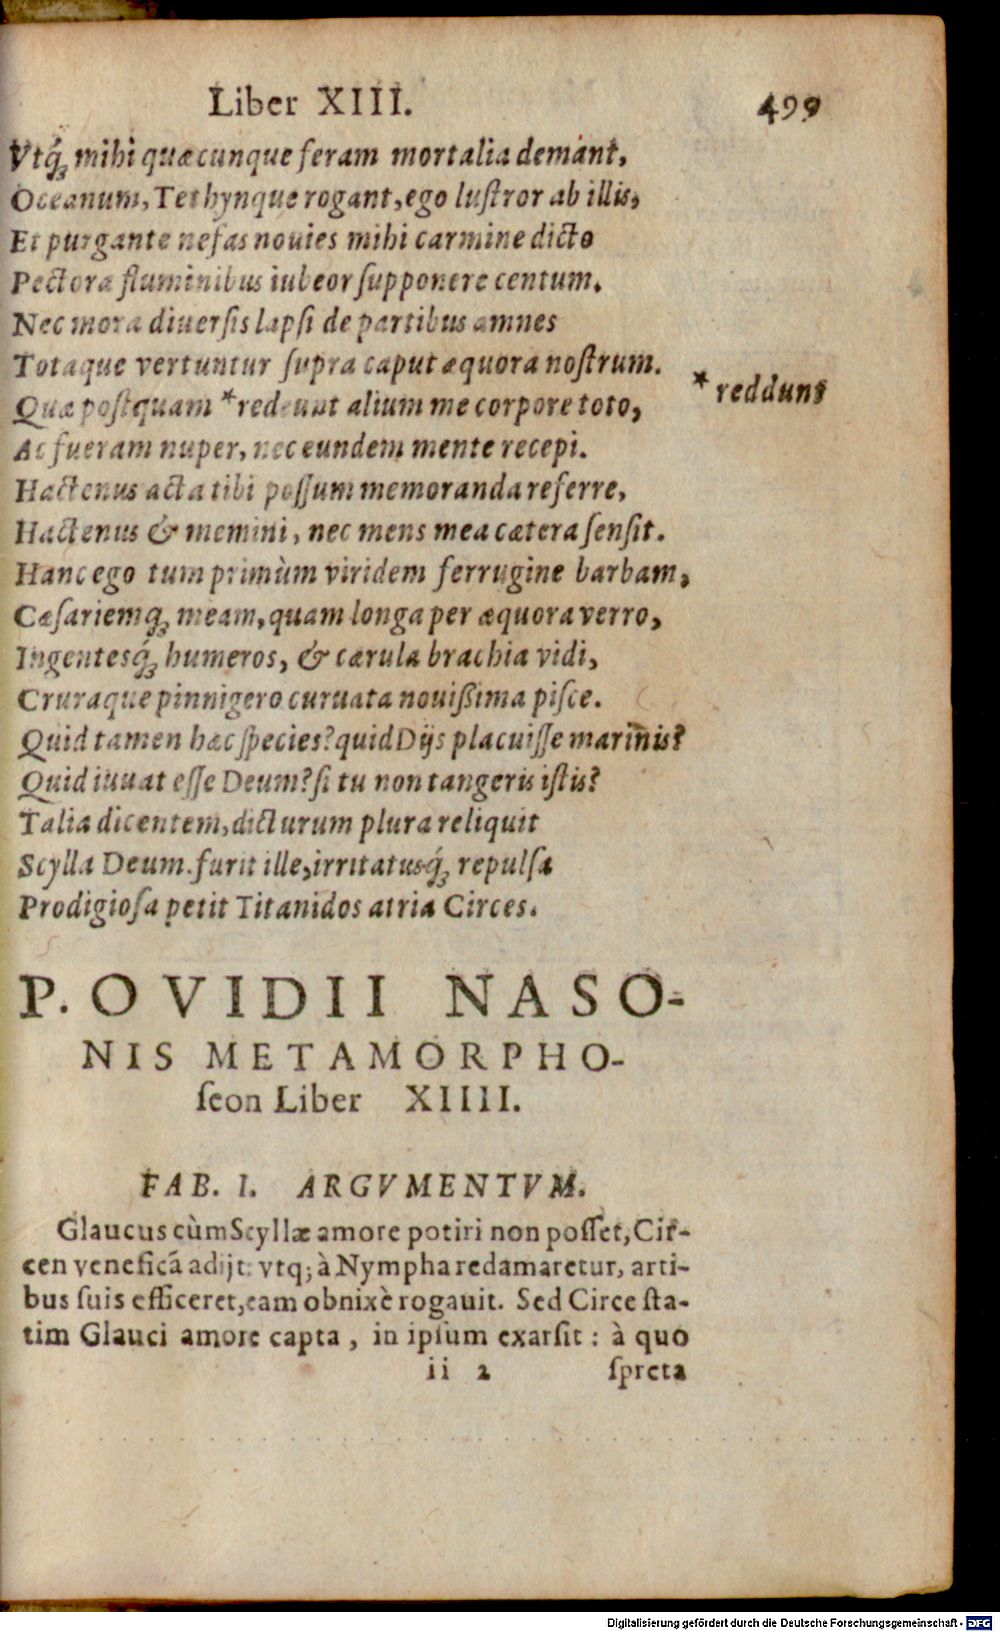 Liber XIII. 499
Vtq́ꝫ mihi quæcunque feram mortalia demant,
Oceanum, Tethynque rogant, ego luſtror ab illis,
Et purgante nefas nouies mihi carmine dicto
Pectora fluminibus iubeor ſupponere centum.
Nec mora diuerſis lapſi de partibus amnes
Totaque vertuntur ſupra caput æquora noſtrum.
Quæ poſtquam *redeunt alium me corpore toto,
*reddunt
Ac fueram nuper, nec eundem mente recepi.
Hactenus acta tibi poſſum memoranda referre,
Hactenus & memini, nec mens mea cætera ſenſit.
Hanc ego tum primùm viridem ferrugine barbam,
Cæſariemq́ꝫ meam, quam longa per æquora verro,
Ingentesq́ꝫ humeros, & cærula brachia vidi,
Cruraque pinnigero curuata nouißima piſce.
Quid tamen hæc ſpecies? quid Dijs placuiſſe marinis?
Quid iuuat eſſe Deum? ſi tu non tangeris iſtis?
Talia dicentem, dicturum plura reliquit
Scylla Deum. furit ille, irritatusq́ꝫ repulſa
Prodigioſa petit Titanidos atria Circes.
P. OVIDII NASO-
NIS METAMORPHO-
ſeon Liber XIIII.
FAB. I. ARGVMENTVM.
Glaucus cùm Scyllæ amore potiri non poſſet, Cir-
cen veneficā adijt: vtq; à Nympha redamaretur, arti-
bus ſuis efficeret, eam obnixè rogauit. Sed Circe ſta-
tim Glauci amore capta, in ipſum exarſit: à quo
ii 2 ſpreta
Digitalisierung gefördert durch die Deutsche Forschungsgemeinschaft - DFG